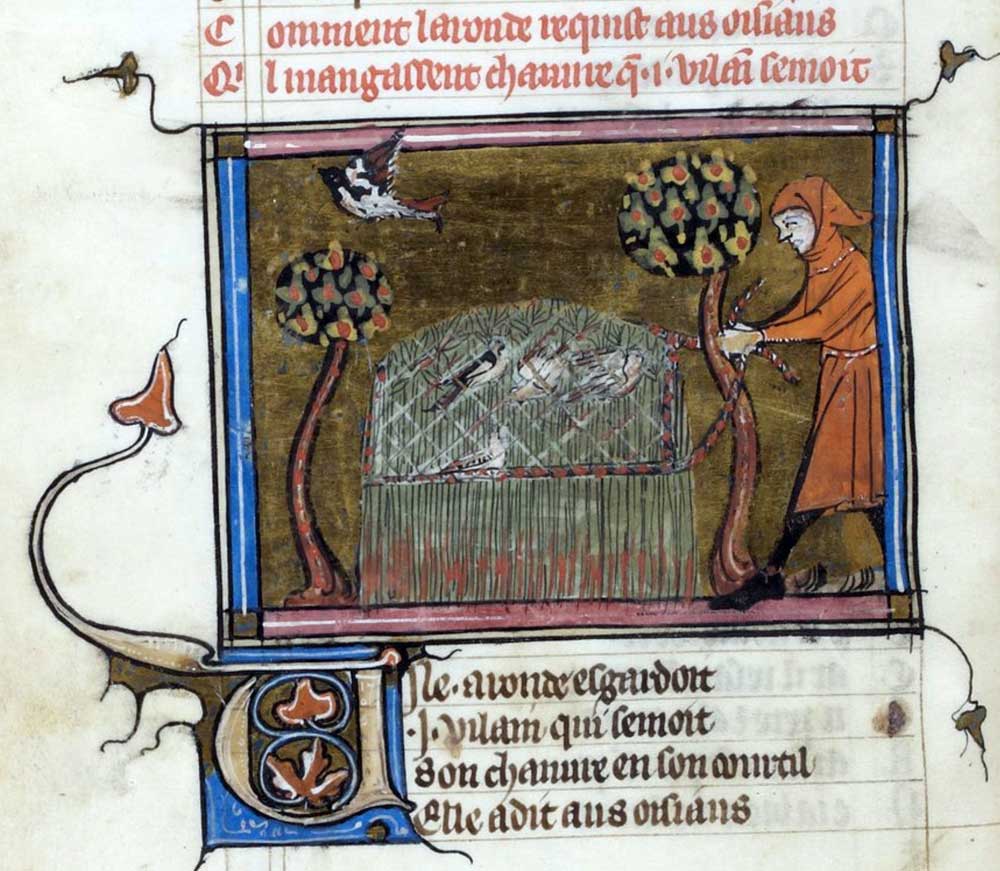 Comment laronde requist aus oisiaus
Q'il mangassent chanure q̃ .i. vilaī semoit
Une aronde esgardoit
.I. vilain qui semoit
Son chanure en son courtil
Elle a dit aus oisiaus